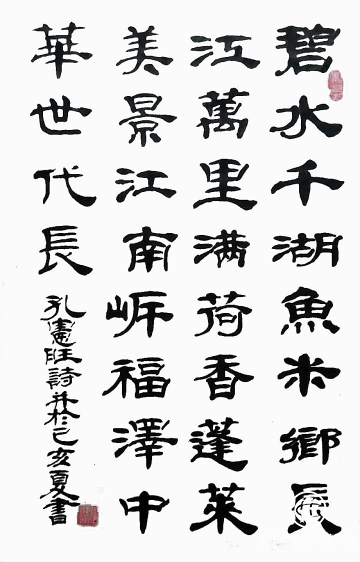 碧水千湖魚米鄉長
江萬里满荷香蓬萊
美景江南福澤中
華世代長
孔憲旺詩并於己亥夏書